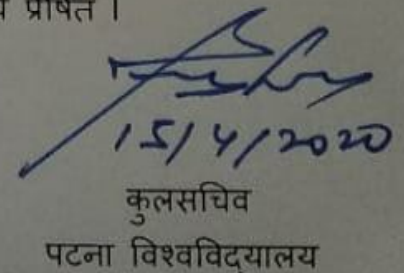 प्रेषित ।
15/4/2020
कुलसचिव
पटना विश्वविद्यालय